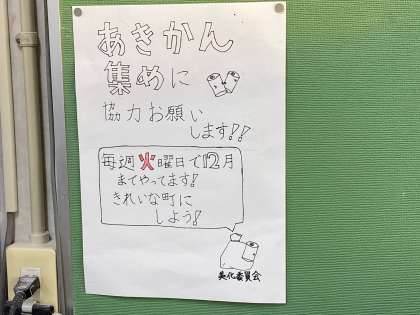 あきかん
集めに
協力お願い
します!!
毎週火曜日で12月
までやってます!
きれいな町に
しよう!
美化委員会